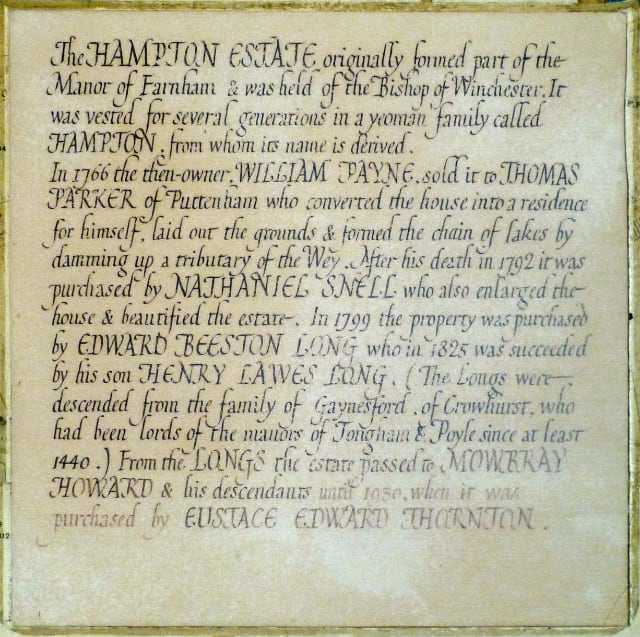 The HAMPTON ESTATE originally formed part of the
Manor of Farnham & was held of the Bishop of Winchester. It
was vested for several generations in a yeoman family called
HAMPTON, from whom its name is derived.
In 1766 the then-owner, WILLIAM PAYNE, sold it to THOMAS
PARKER of Puttenham who converted the house into a residence
for himself, laid out the grounds & formed the chain of lakes by
damming up a tributary of the Wey. After his death in 1792 it was
purchased by NATHANIEL SNELL who also enlarged the
house & beautified the estate. In 1799 the property was purchased
by EDWARD BEESTON LONG who in 1825 was succeeded
by his son HENRY LAWES LONG. (The Longs were
descended from the family of Gaynesford, of Crowhurst, who
had been lords of the manors of Tongham & Poyle since at least
1440.) From the LONGS the estate passed to MOWBRAY
HOWARD & his descendants until 1930, when it was
purchased by EUSTACE EDWARD THORNTON.